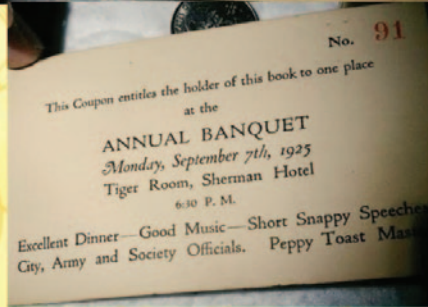 No. 91
This Coupon entitles the holder of this book to one place
at the
ANNUAL BANQUET
Monday, September 7th, 1925
Tiger Room, Sherman Hotel
6:30 P. M.
Excellent Dinner—Good Music—Short Snappy Speeche
City, Army and Society Officials. Peppy Toast Mas